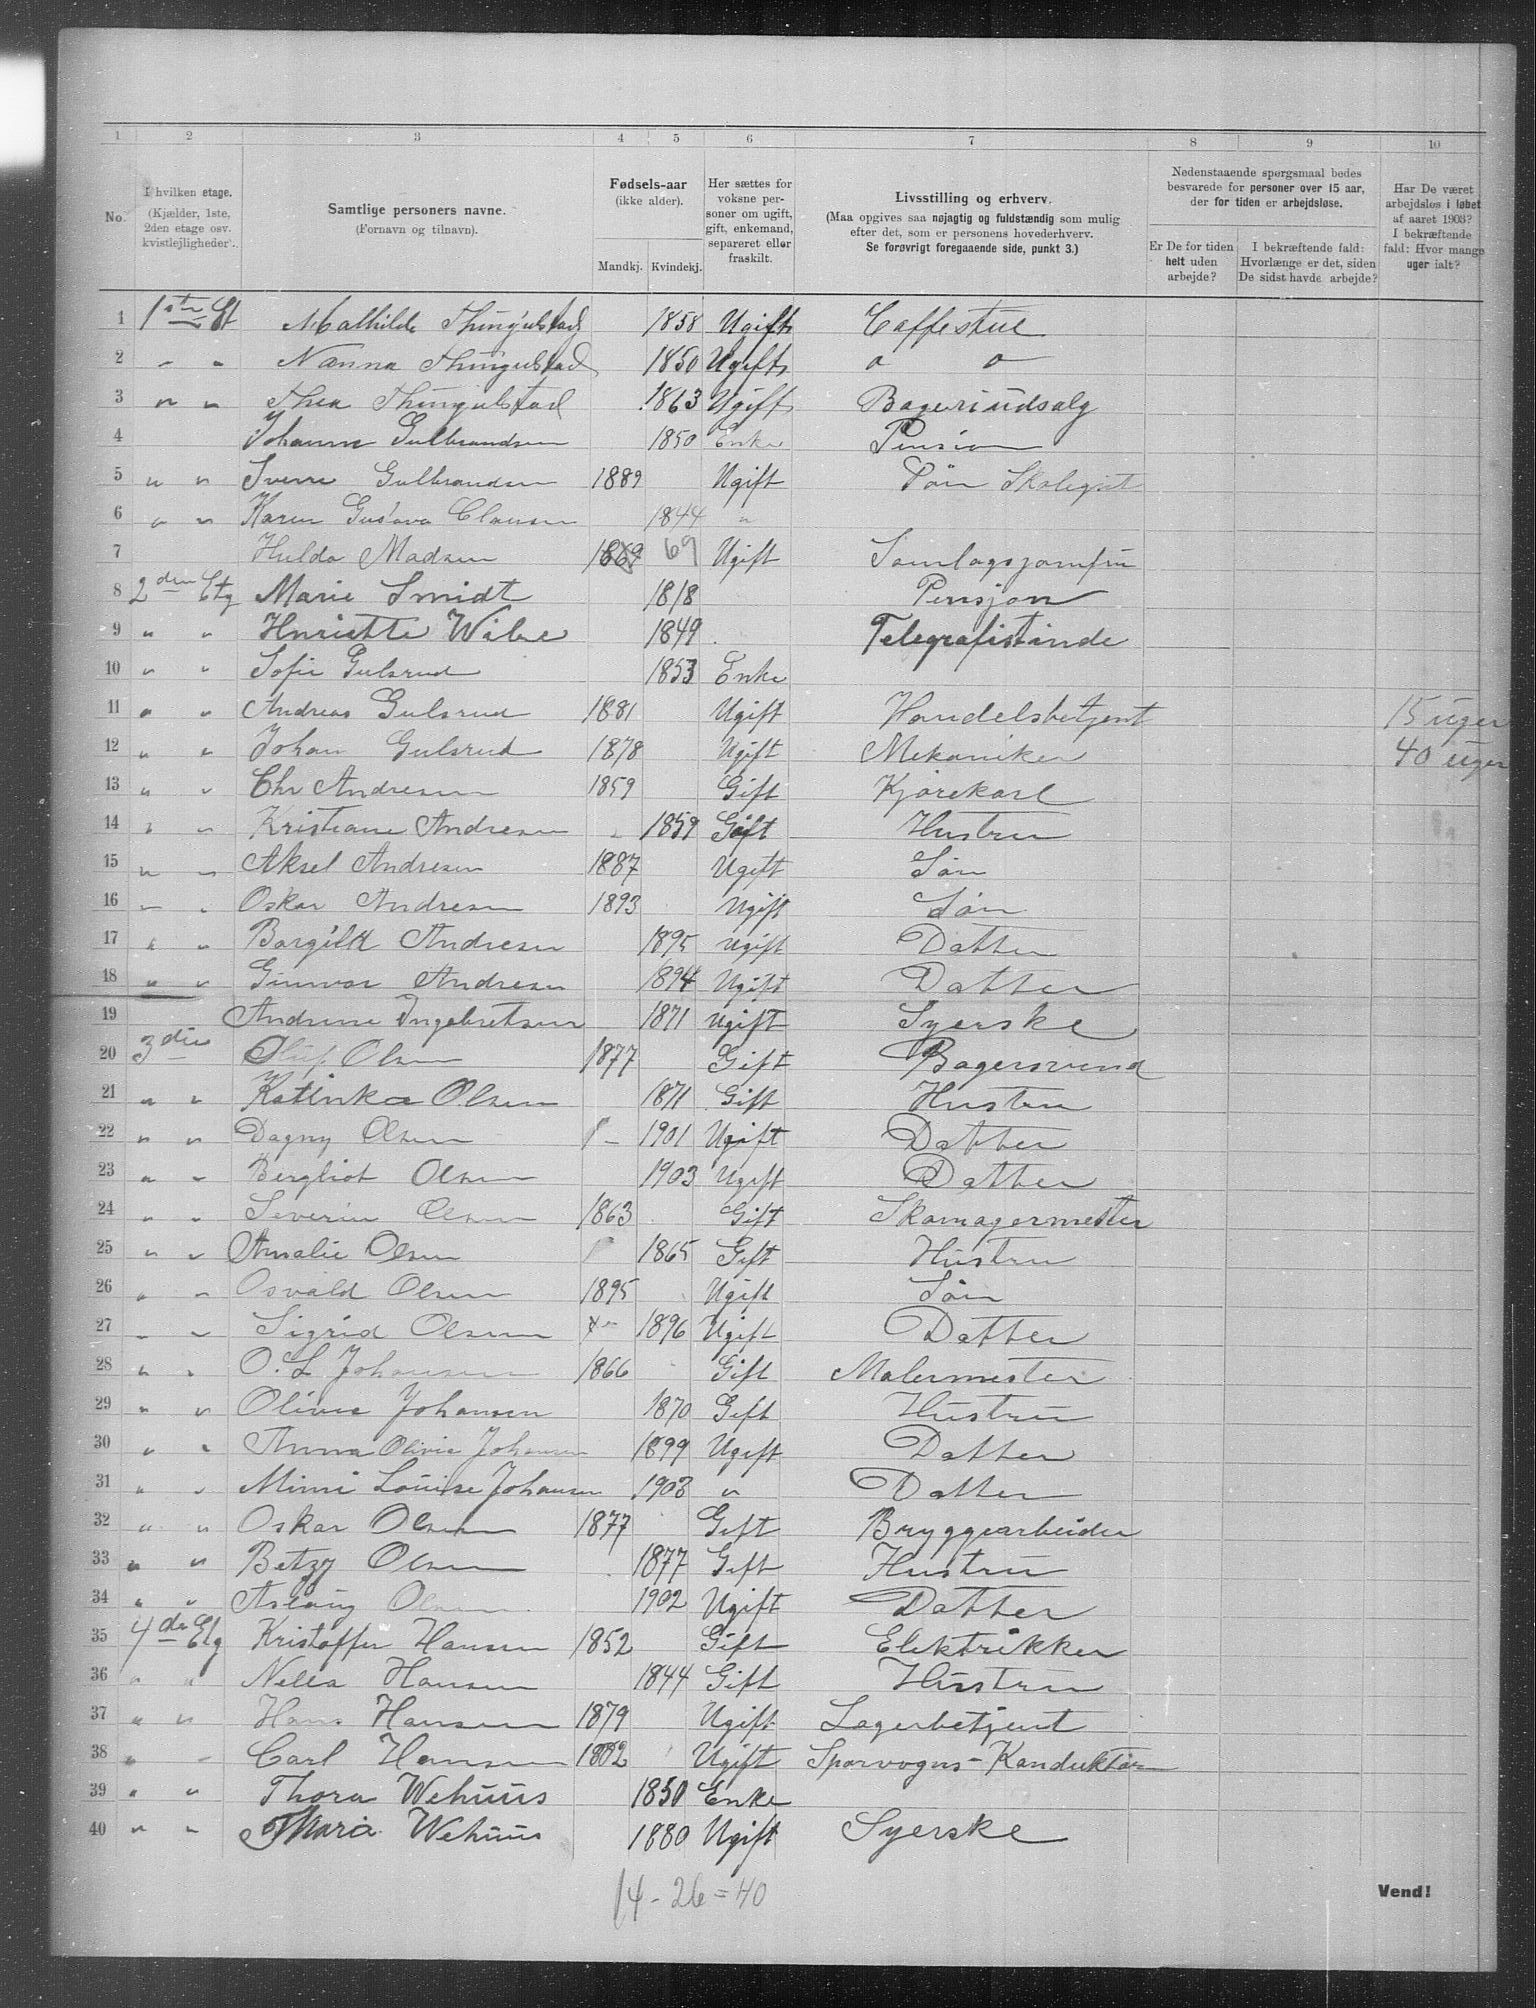 1 2 3 4 5 6 7 8 9 10
No. I hvilken etage. (Kjælder, 1ste, 2den etage osv. kvistlejligheder). Samtlige personers navne. (Fornavn og tilnavn). Fødsels-aar (ikke alder). Mandkj. Kvindekj. Her sættes for voksne personer om ugift, gift, enkemand, separeret eller fraskilt. Livsstilling og erhverv. (Maa opgives saa nøjagtig og fuldstændig som mulig efter det, som er personens hovederhverv. Se forøvrigt foregaaende side, punkt 3.) Nedenstaaende spørgsmaal bedes besvarede for personer over 15 aar, der for tiden er arbejdsløse. Er De for tiden helt uden arbejde? I bekræftende fald: Hvorlænge er det, siden De sidst havde arbejde? Har De været arbejdsløs i løbet af aaret 1903? I bekræftende fald: Hvor mange uger ialt?
1 1ste Et Mathilde Thingulstad 1858 Ugift Caffestue
2 " " Nanna Thingulstad 1850 Ugift " "
3 " " Thea Thingulstad 1863 Ugift Bageriudsalg
4 Johanne Gulbrandsen 1850 Enke Pension
5 " " Sverre Gulbrandsen 1889 Ugift Søn Skolegut
6 " " Karen Gustava Clausen 1844 "
7 Hulda Madsen 1869 69 Ugift Samlagsjomfru
8 2den Etg Marie Smidt 1818 Pensjon
9 " " Henriette Wibe 1849 Telegrafistinde
10 " " Sofie Gulsrud 1853 Enke
11 " " Andreas Gulsrud 1881 Ugift Handelsbetjent 15 uger
12 " " Johan Gulsrud 1878 Ugift Mekaniker 40 uger
13 " " Chr Andresen 1859 Gift Kjørekarl
14 " " Kristiane Andresen 1859 Gift Hustru
15 " " Aksel Andresen 1887 Ugift Søn
16 " " Oskar Andresen 1893 Ugift Søn
17 " " Borgild Andresen 1895 Ugift Datter
18 " " Gunvor Andresen 1894 Ugift Datter
19 Andrine Ingebretsen 1871 Ugift Syerske
20 3die Oluf Olsen 1877 Gift Bagersvend
21 " " Katinka Olsen 1871 Gift Hustru
22 " " Dagny Olsen 1901 Ugift Datter
23 " " Bergliot Olsen 1903 Ugift Datter
24 " " Severin Olsen 1863 Gift Skomagermester
25 " " Amalie Olsen 1865 Gift Hustru
26 " " Osvald Olsen 1895 Ugift Søn
27 " " Sigrid Olsen 1896 Ugift Datter
28 " " O. L Johansen 1866 Gift Malermester
29 " " Olivia Johansen 1870 Gift Hustru
30 " " Anna Olivia Johansen 1899 Ugift Datter
31 " " Mimi Louise Johansen 1903 " Datter
32 " " Oskar Olsen 1877 Gift Bryggearbeider
33 " " Betzy Olsen 1877 Gift Hustru
34 " " Aslaug Olsen 1902 Ugift Datter
35 4de Etg Kristoffer Hansen 1852 Gift Elektrikker
36 " " Nella Hansen 1844 Gift Hustru
37 " " Hans Hansen 1879 Ugift Lagerbetjent
38 " " Carl Hansen 1882 Ugift Sporvogns-Konduktør
39 " " Thora Wehuus 1850 Enke
40 " " Maria Wehuus 1880 Ugift Syerske
14 - 26 = 40
Vend!